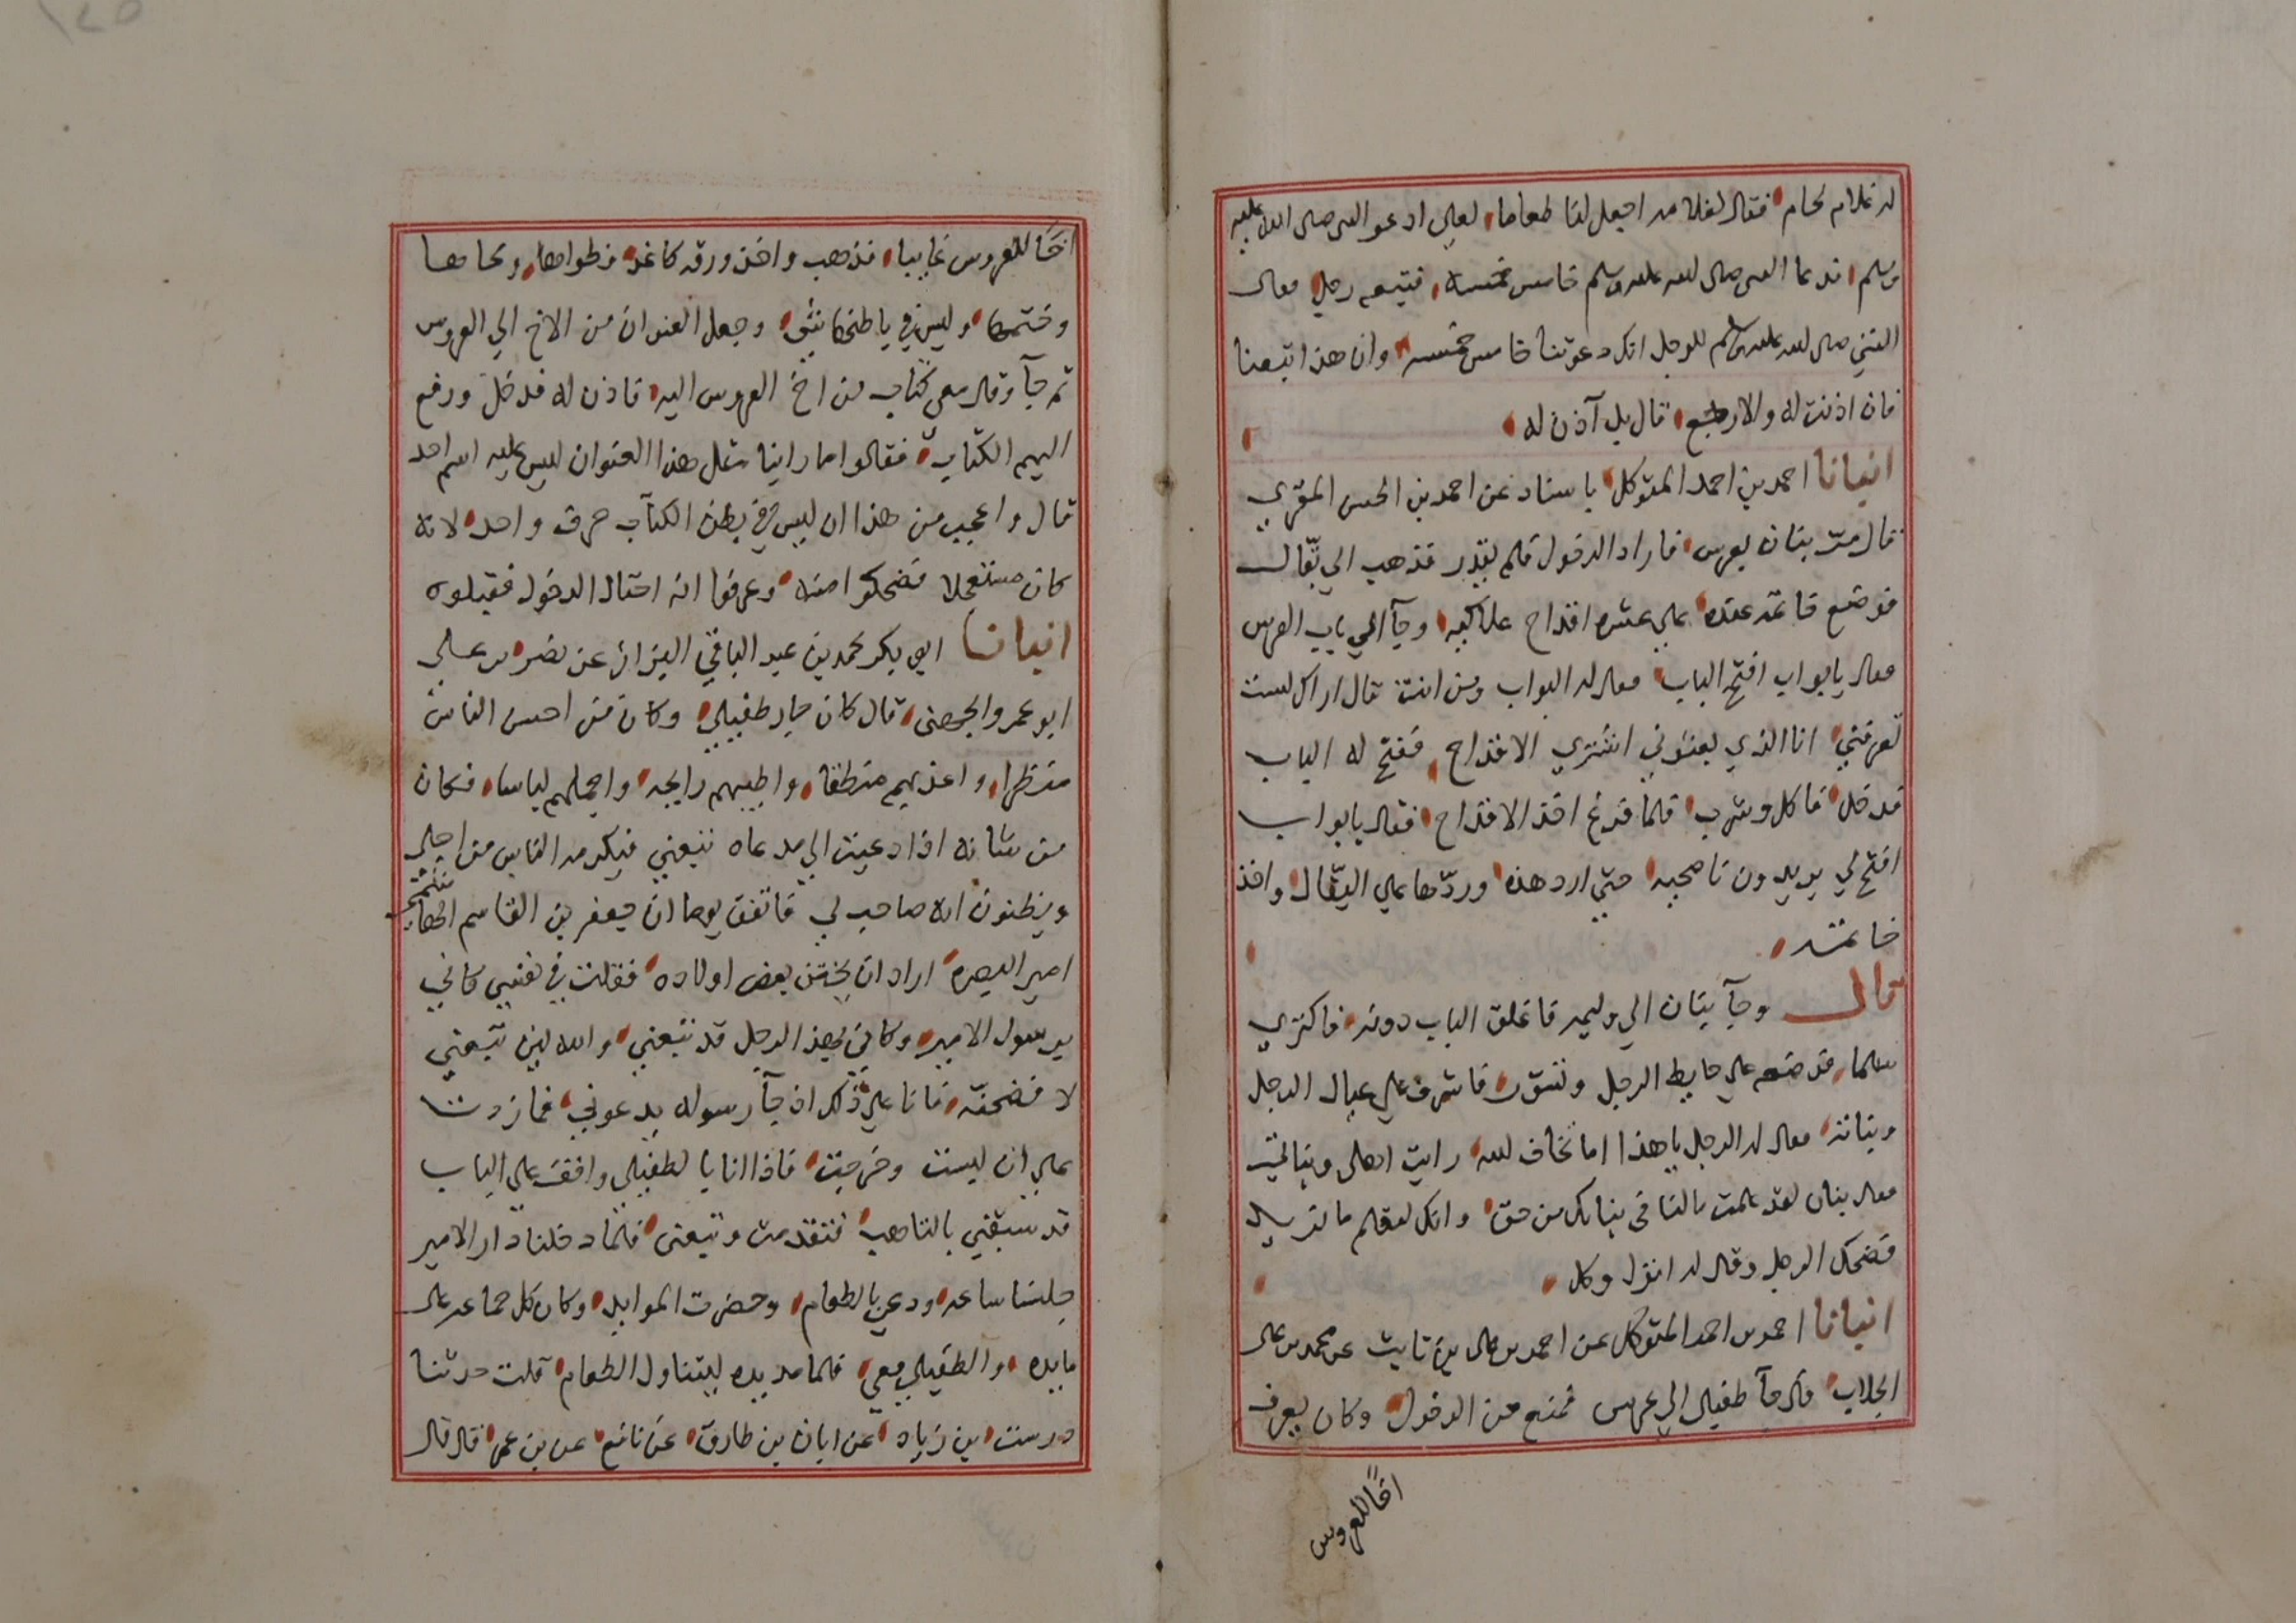 له غلام لحام فقال لغلامه اجعل لنا طعاما لعلي ادعو النبي صلى الله عليه
وسلم فدعا النبي صلى الله عليه وسلم خامس خمسه فتبعه رجل فقال
النبي صلى الله عليه وسلم للرجل انك دعوتنا خامس خمسه وان هذا تبعنا
فان اذنت له والا رجع قال بل آذن له
انبانا احمد بن احمد المتوكل باسناد عن احمد بن الحسن المقري
قال مرّ بنان بعرس فاراد الدخول فلم يقدر فذهب الي بقّال
فوضع خاتمه عنده علي عشره اقداح وجآ الي باب العرس
فقال يا بواب افتح الباب فقال له البواب ومن انت قال اراك لست
تعرفني انا الذي بعثوني اشتري الاقداح ففتح له الباب
فدخل فاكل وشرب فلما فرغ اخذ الاقداح فقال يا بواب
افتح لي يريدون ناصحيه حتي ارد هذه وردّها علي البقّال واخذ
خاتمه
قال وجآ بنان الي وليمه فاغلق الباب دونه فاكتري
سلما فوضعه علي حايط الرجل وتسوّر فاشرف علي عيال الرجل
وبناته فقال له الرجل يا هذا اما تخاف الله رايت اهلي وبناتي
فقال بنان لقد علمت مالنا في بناتك من حق وانك لتعلم ما نريد
فضحك الرجل وقال له انزل وكل
انبانا احمد بن احمد المتوكل عن احمد بن علي بن ثابت عن محمد بن علي
الجلاب قال جآ طفيلي الي عرس فمنع من الدخول وكان يعرف
اخًا للعروس
اخًا للعروس غايبا فذهب واخذ ورقه كاغد فطواها وسحاها
وختمها وليس في باطنها شي وجعل العنوان من الاخ الي العروس
ثم جآ وقال معي كتاب من اخ العروس اليه فاذن له فدخل ورفع
اليهم الكتاب فقالوا ما راينا مثل هذا العنوان ليس عليه اسم احد
قال واعجب من هذا ان ليس في بطن الكتاب حرف واحد لانه
كان مستعجلا فضحكوا منه وعرفوا انه احتال الدخول فقبلوه
انبانا ابي بكر محمد بن عبد الباقي البزاز عن نصر بن علي
ابو عمرو الجهضمي قال كان جار طفيلي وكان من احسن الناس
منظرا واعذبهم منطقا واطيبهم رايحه واجملهم لباسا فكان
من شانه اذا دعيت الي مدعاه تبعني فيكرمه الناس من اجلي
ويظنون انه صاحب لي فاتفق يوما ان جعفر بن القاسم الهاشمي
امير البصره اراد ان يختن بعض اولاده فقلت في نفسي كاني
برسول الامير وكاني بهذا الرجل قد تبعني والله لين تبعني
لافضحنّه فانا علي ذلك اذ جآ رسوله يدعوني فما زدت
علي ان لبست وخرجت فاذا انا بالطفيلي واقف علي الباب
قد سبقني بالتاهب فتقدمت وتبعني فلما دخلنا دار الامير
جلسنا ساعه ودعي بالطعام وحضرت الموايد وكان كل جماعه علي
مايده والطفيلي معي فلما مد يده ليتناول الطعام قلت حدثنا
درست بن زياد عن ابان بن طارق عن نافع عن بن عمر قال قال